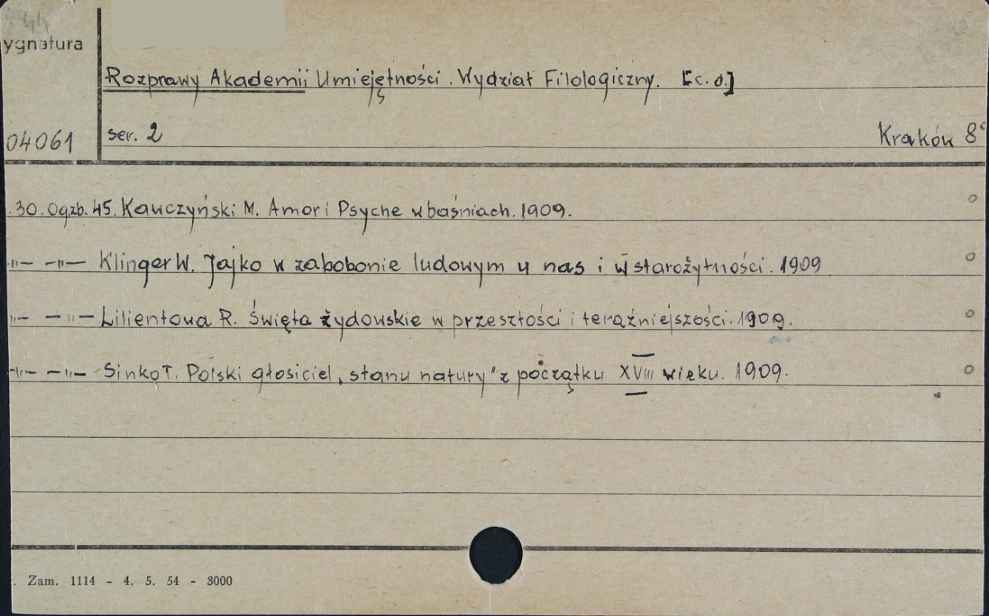 44
ygnatura
Rozprawy Akademii Umiejętności. Wydział Filologiczny. [c.d.]
04061 ser. 2 Kraków 8°
.30. Ogzb. 45. Kawczyński M. Amor i Psyche w baśniach. 1909.
-"- -"- Klinger W. Jajko w zabobonie ludowym u nas i w starożytności. 1909
-"- -"- Lilientowa R. Święta żydowskie w przeszłości i teraźniejszości. 1909.
-"- -"- Sinko T. Polski głosiciel „stanu natury" z początku XVIII wieku. 1909.
. Zam. 1114 - 4. 5. 54 - 3000